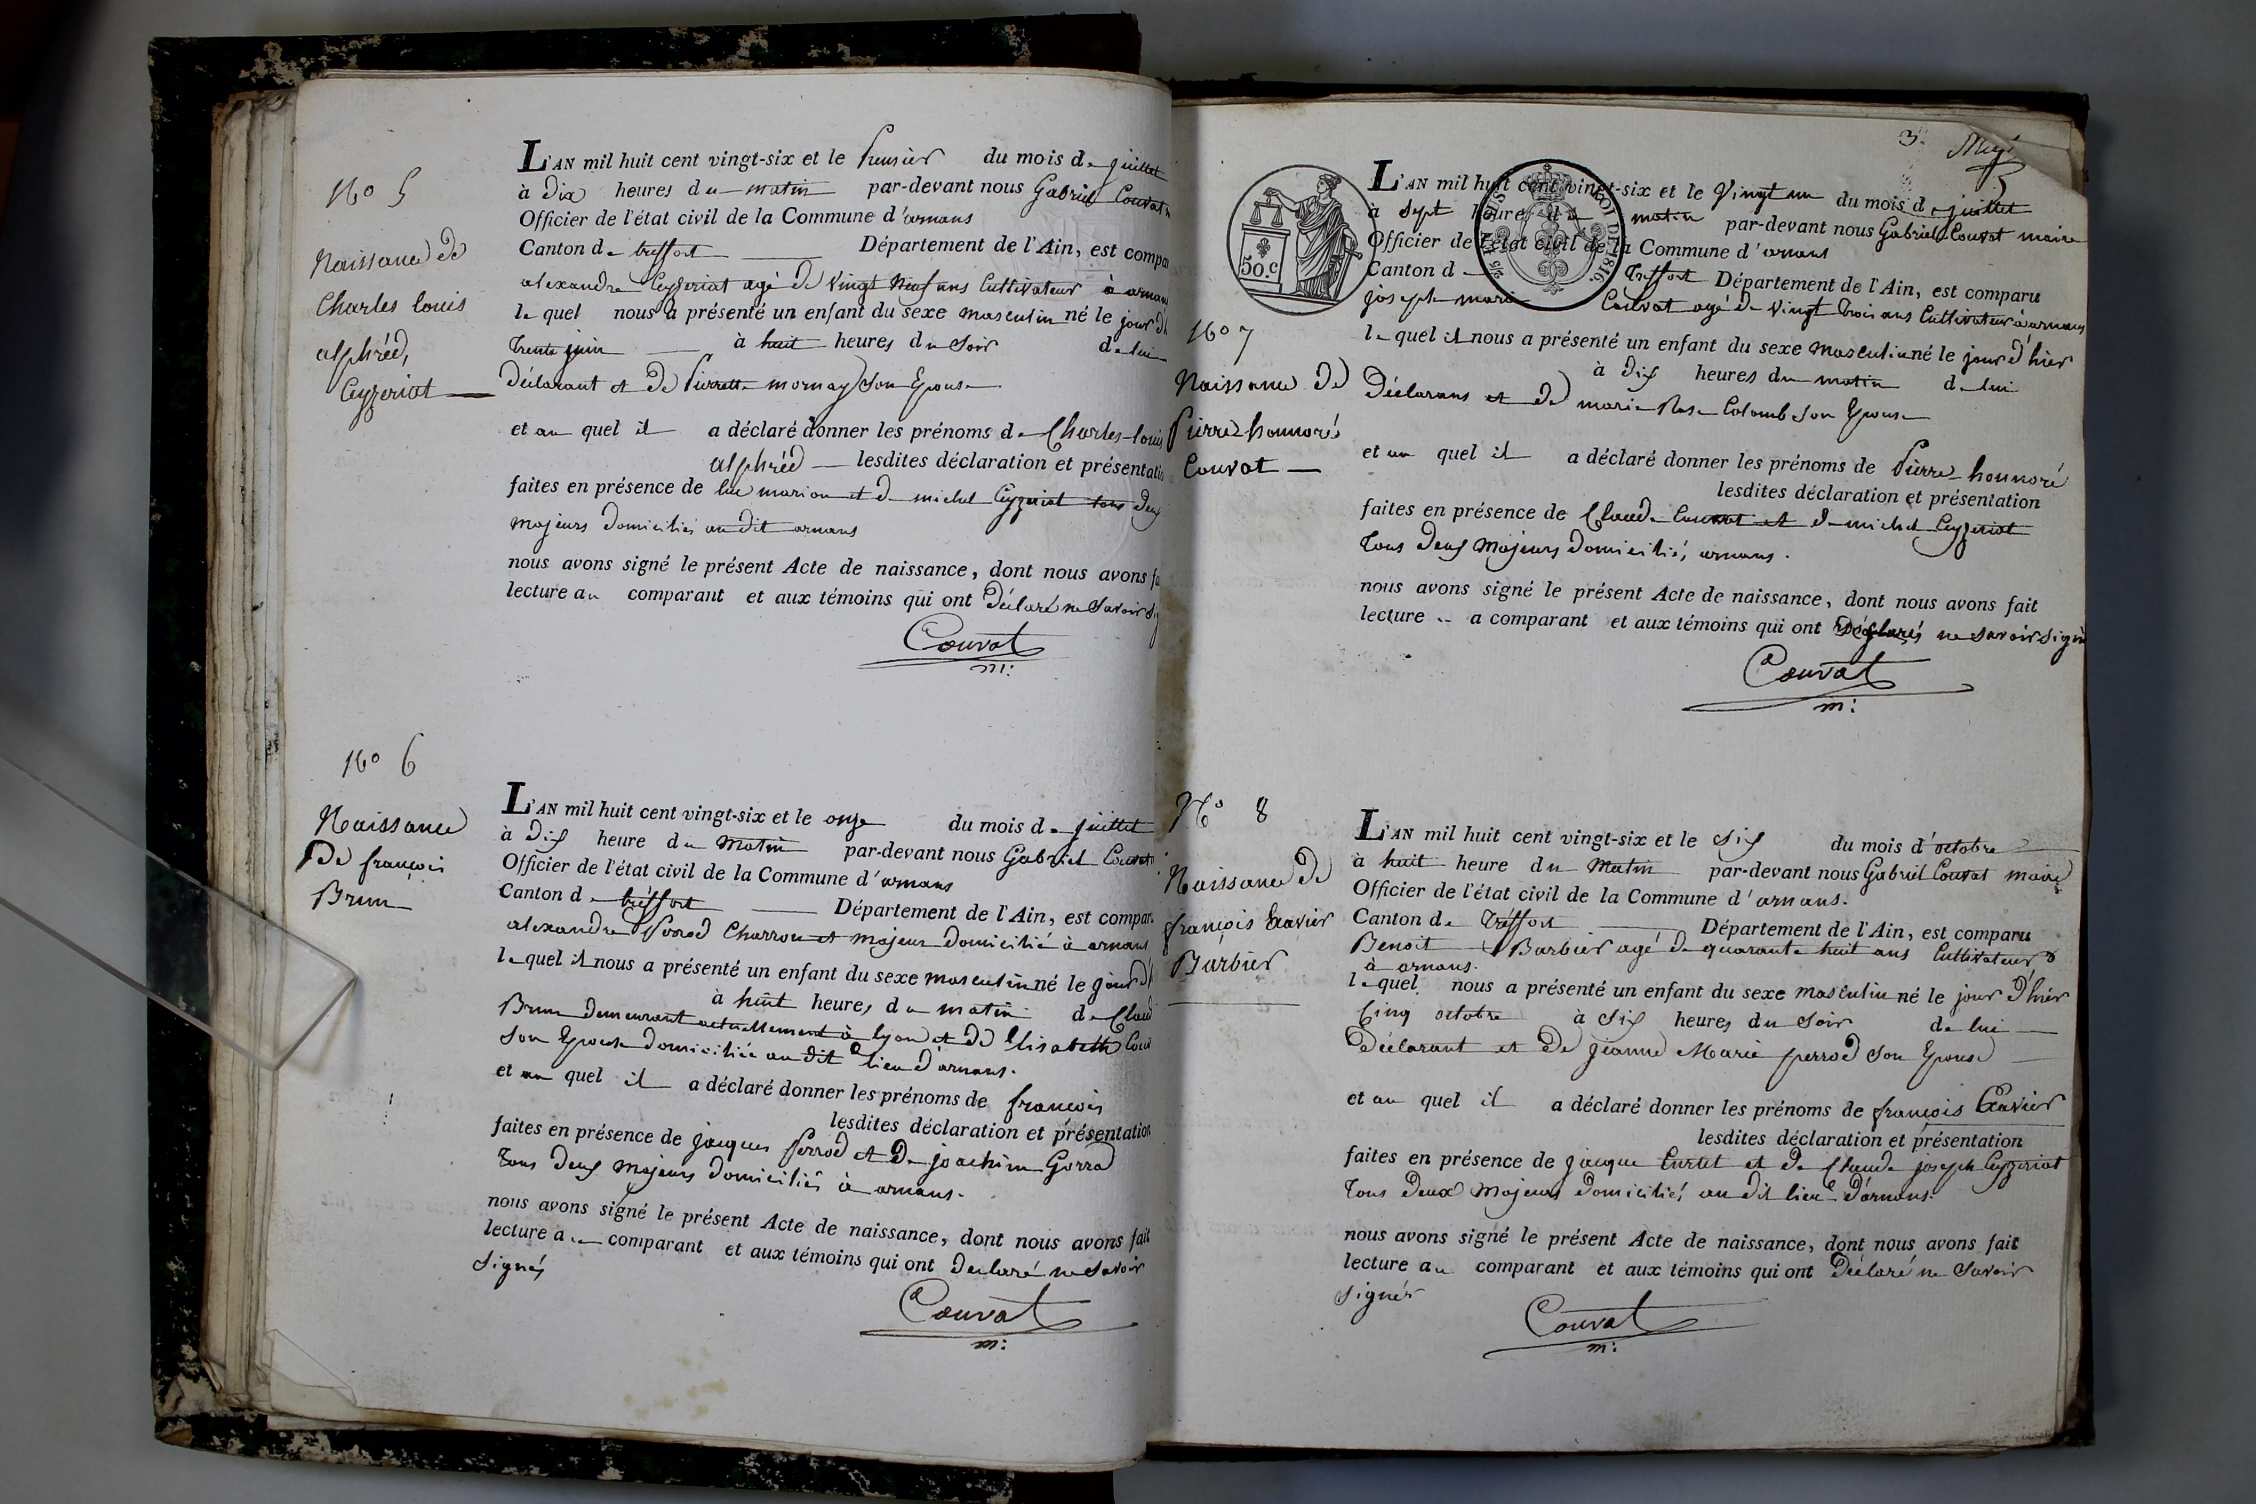 N° 5
Naissance de
Charles louis
alphréd,
Ceyzeriat
L'AN mil huit cent vingt-six et le Premier du mois de juillet
à dix heures du matin par-devant nous Gabriel Couvat
Officier de l'état civil de la Commune d'arnans
Canton de treffort Département de l'Ain, est compa
alexandre Ceyzeriat agé de vingt neuf ans Cultivateur à arnans
le quel nous a présenté un enfant du sexe masculin né le jour d'h
trente juin à huit heures du soir de lui
déclarant et de Pierrette mornay son Epouse
et au quel il a déclaré donner les prénoms de Charles louis
alphréd lesdites déclaration et présentatio
faites en présence de luc marion et de michel Ceyzeriat tous deux
majeurs domiciliés au dit arnans
nous avons signé le présent Acte de naissance, dont nous avons fa
lecture au comparant et aux témoins qui ont déclaré ne savoir sig
Couvat
m:
N° 6
Naissance
De françois
Brun
L'AN mil huit cent vingt-six et le onze du mois de juillet
à dix heure du matin par-devant nous Gabriel Couvat
Officier de l'état civil de la Commune d'arnans
Canton de tréffort Département de l'Ain, est compar
alexandre Perrod Charron et majeur domicilié à arnans
le quel il nous a présenté un enfant du sexe masculin né le jour d'h
à huit heures du matin de Claud
Brun demeurant actuellement à lyon et de Elisabeth Couv
son Epouse domiciliée au dit lieu d'arnans.
et au quel il a déclaré donner les prénoms de françois
lesdites déclaration et présentation
faites en présence de jacques Perrod et de joachim Gorrad
tous deux majeurs domiciliés à arnans.
nous avons signé le présent Acte de naissance, dont nous avons fait
lecture au comparant et aux témoins qui ont déclaré ne savoir
signés
Couvat
m:
3.
50.c
ROI DE 1816.
N° 7
Naissance de
Pierre honnoré
Couvat
L'AN mil huit cent vingt-six et le Vingt un du mois de juillet
à sept heures du matin par-devant nous Gabriel Couvat maire
Officier de l'état civil de la Commune d'arnans
Canton d Treffort Département de l'Ain, est comparu
joseph marie Couvat agé de vingt trois ans Cultivateur à arnans
le quel il nous a présenté un enfant du sexe masculin né le jour d'hier
à dix heures du matin de lui
Déclarans et de marie Rose Colomb son Epouse
et au quel il a déclaré donner les prénoms de Pierre honnoré
lesdites déclaration et présentation
faites en présence de Claude Couvat et de michel Ceyzeriat
tous deux majeurs domiciliés arnans.
nous avons signé le présent Acte de naissance, dont nous avons fait
lecture a comparant et aux témoins qui ont déclarés ne savoir signé
Couvat
m:
N° 8
Naissance de
françois Exavier
Barbier
L'AN mil huit cent vingt-six et le six du mois d'octobre
à huit heure du Matin par-devant nous Gabriel Couvat maire
Officier de l'état civil de la Commune d'arnans.
Canton de Tréffort Département de l'Ain, est comparu
Benoit Barbier agé de quarante huit ans Cultivateur
à arnans.
le quel nous a présenté un enfant du sexe masculin né le jour d'hier
Cinq octobre à six heures du soir de lui
Déclarant et de jeanne Marie perrod son Epouse
et au quel il a déclaré donner les prénoms de françois Exavier
lesdites déclaration et présentation
faites en présence de jacque Curtet et de Claude joseph Ceyzeriat
tous deux majeurs domiciliés au dit lieu d'arnans.
nous avons signé le présent Acte de naissance, dont nous avons fait
lecture au comparant et aux témoins qui ont Déclaré ne savoir
signér
Couvat
m: